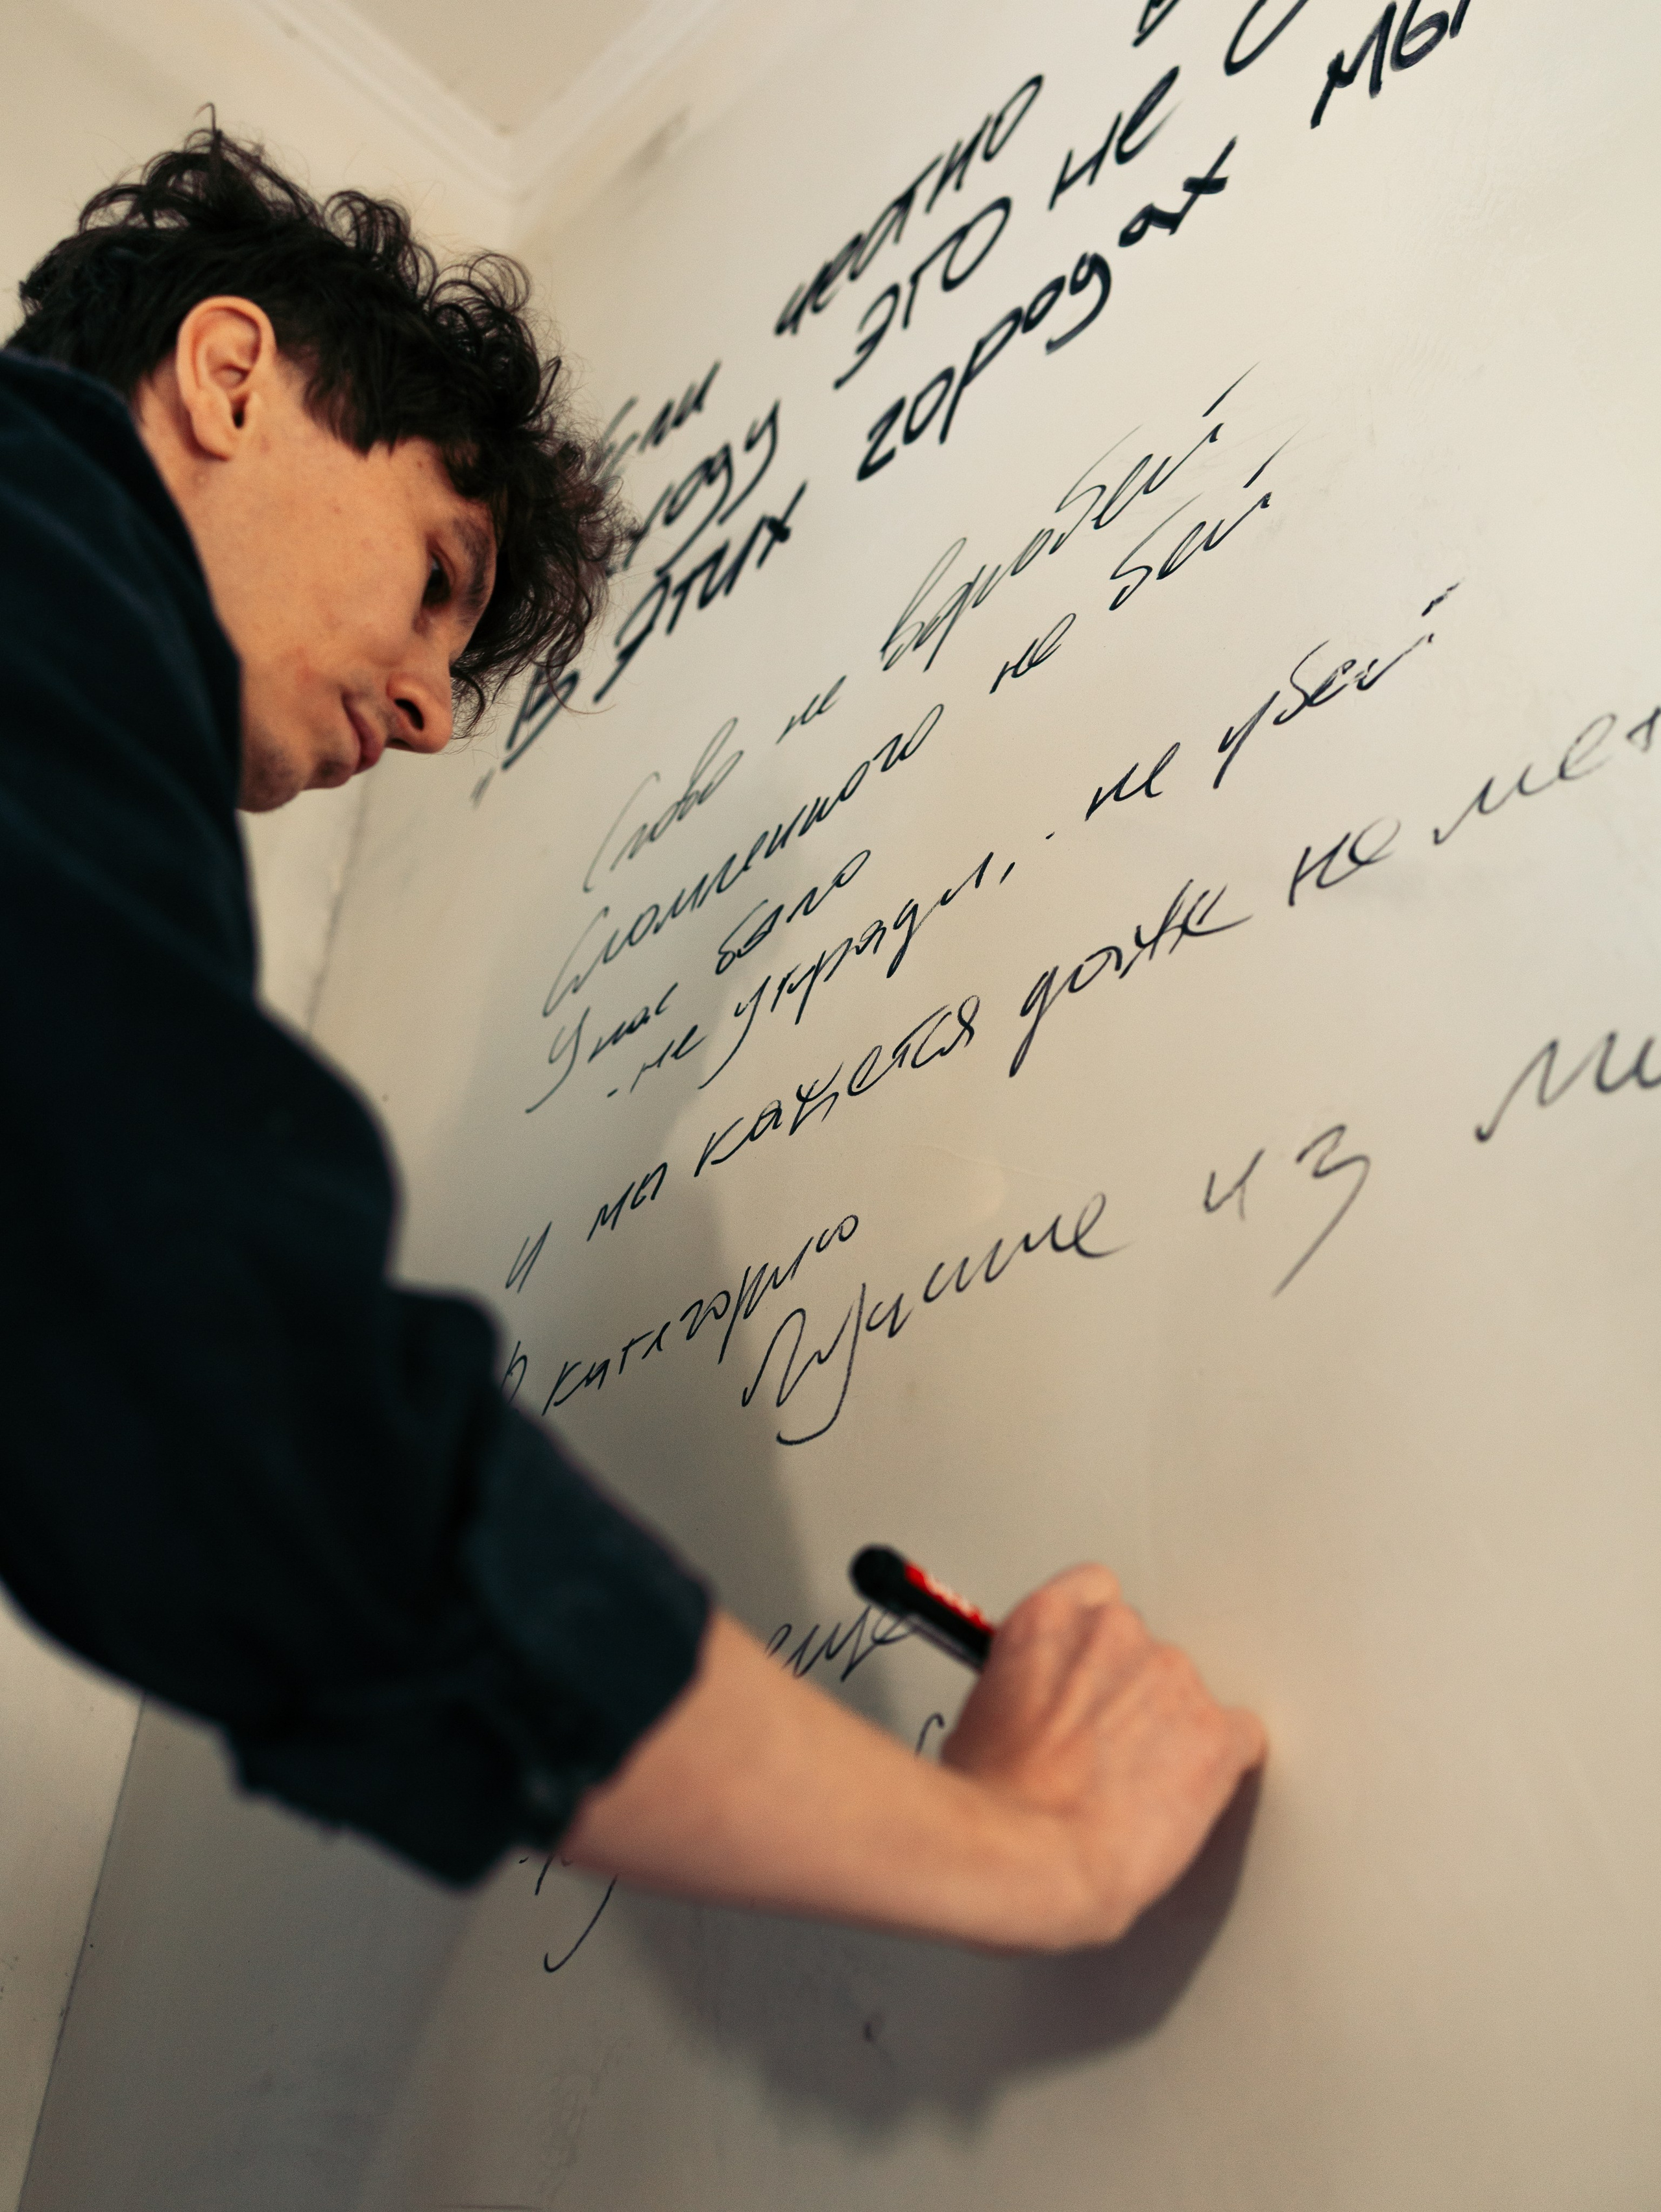 если честно в
ходу это не
"В этих городах мы
Слово не воробей
Сломленного не бей
У нас было
- не укради, - не убей
И мы кажется даже не
в категорию
Лучшие из
еще